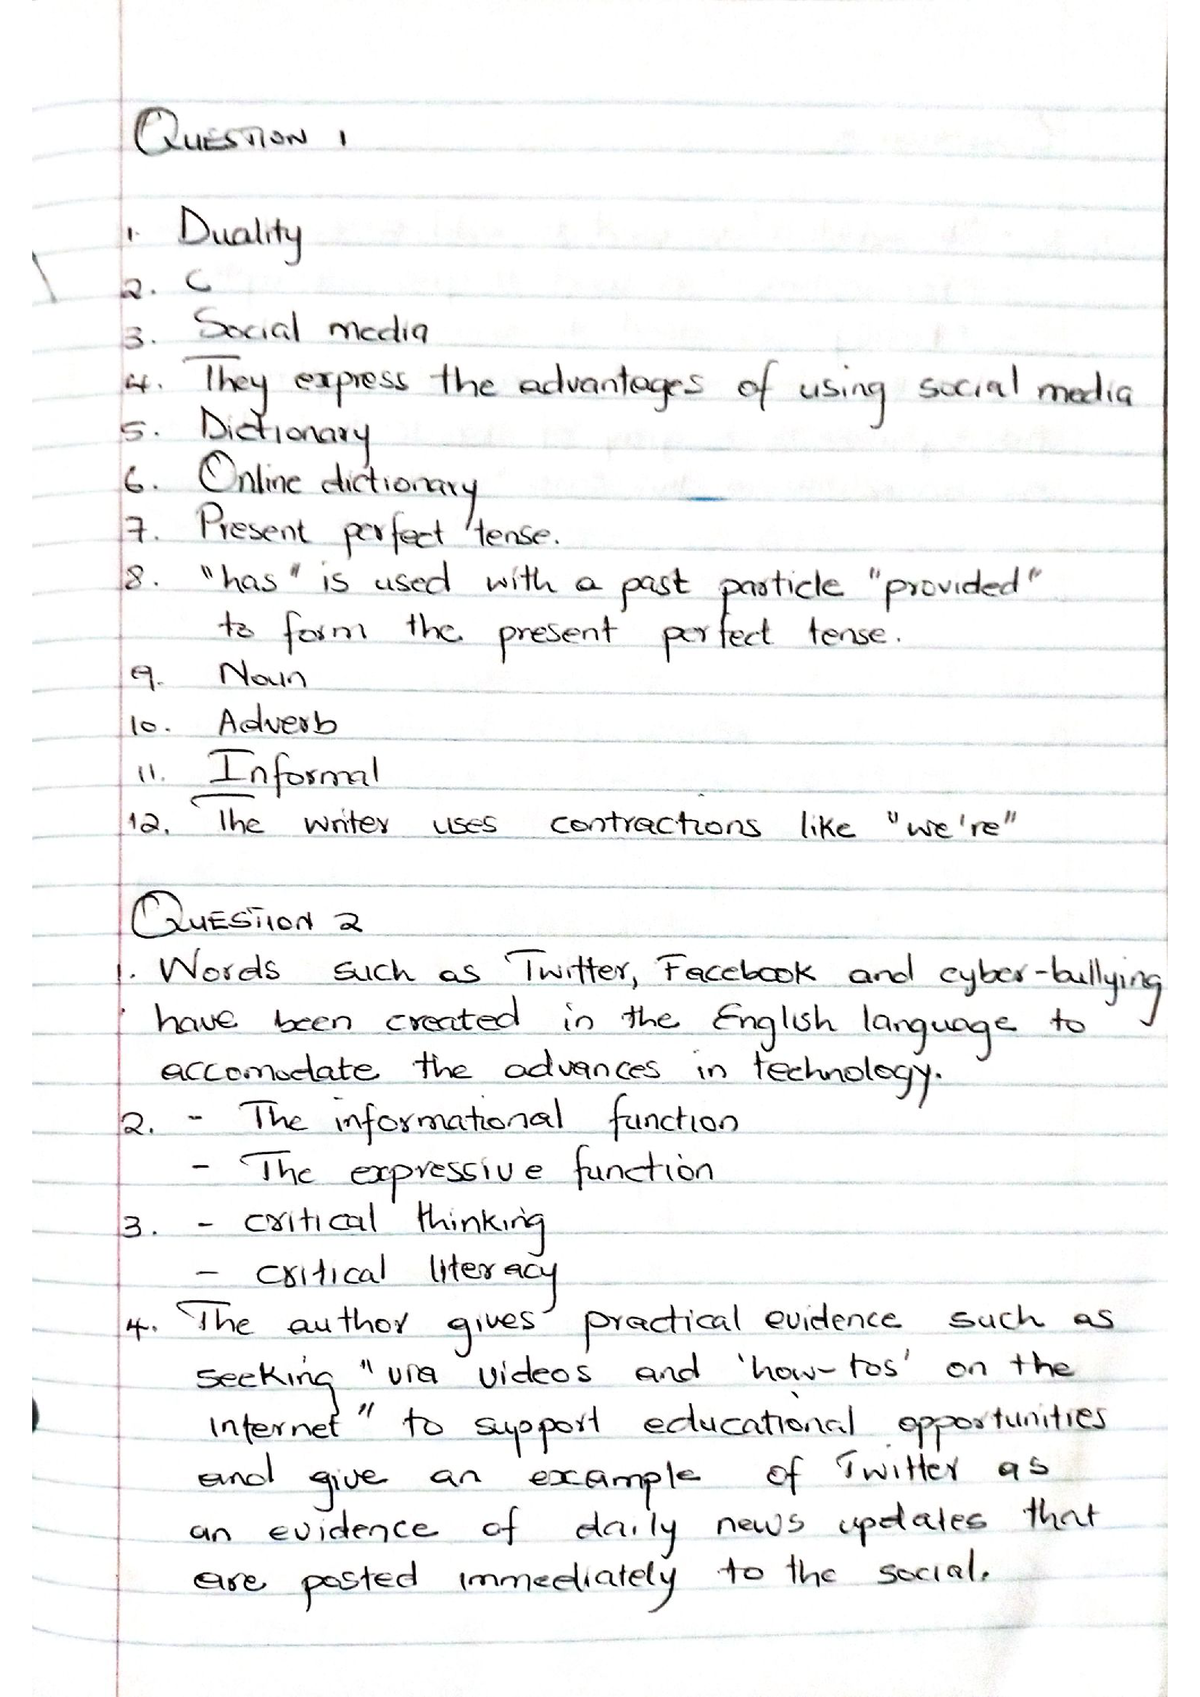 QUESTION 1
1. Duality
2. C
3. Social media
4. They express the advantages of using social media
5. Dictionary
6. Online dictionary
7. Present perfect tense.
8. "has" is used with a past particle "provided"
to form the present perfect tense.
9. Noun
10. Adverb
11. Informal
12. The writer uses contractions like "we're"
QUESTION 2
1. Words such as Twitter, Facebook and cyber-bullying
have been created in the English language to
accomodate the advances in technology.
2. - The informational function
- The expressive function
3. - critical thinking
- critical literacy
4. The author gives practical evidence such as
seeking "via videos and 'how-tos' on the
internet" to support educational opportunities
and give an example of Twitter as
an evidence of daily news updates that
are posted immediately to the social.